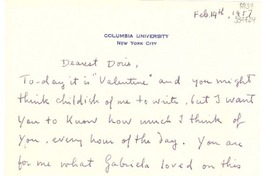 Feb. 14th, 1957
COLUMBIA UNIVERSITY
NEW YORK CITY
Dearest Doris,
To-day it is "Valentine" and you might
think childish of me to write, but I want
you to know how much I think of
you, every hour of the day. You are
for me what Gabriela loved on this